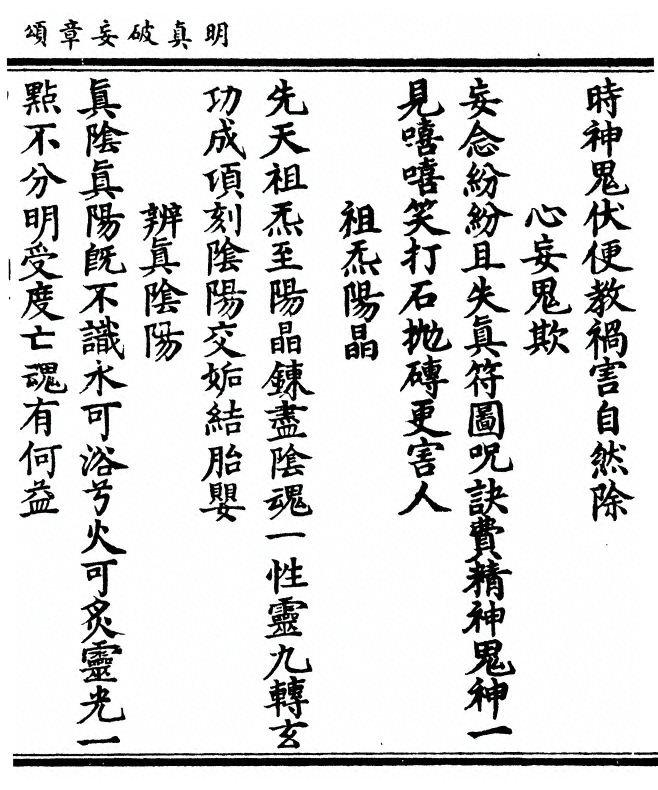 明真破妄章頌
時神鬼伏便教禍害自然除
心妄鬼欺
妄念紛紛且失眞符圖呪訣費精神鬼神一
見嘻嘻笑打石拋磚更害人
祖炁陽晶
先天祖炁至陽晶鍊盡陰魂一性靈九轉玄
功成頃刻陰陽交姤結胎嬰
辨眞陰陽
眞陰眞陽旣不識水可浴兮火可炙靈光一
點不分明受度亡魂有何益